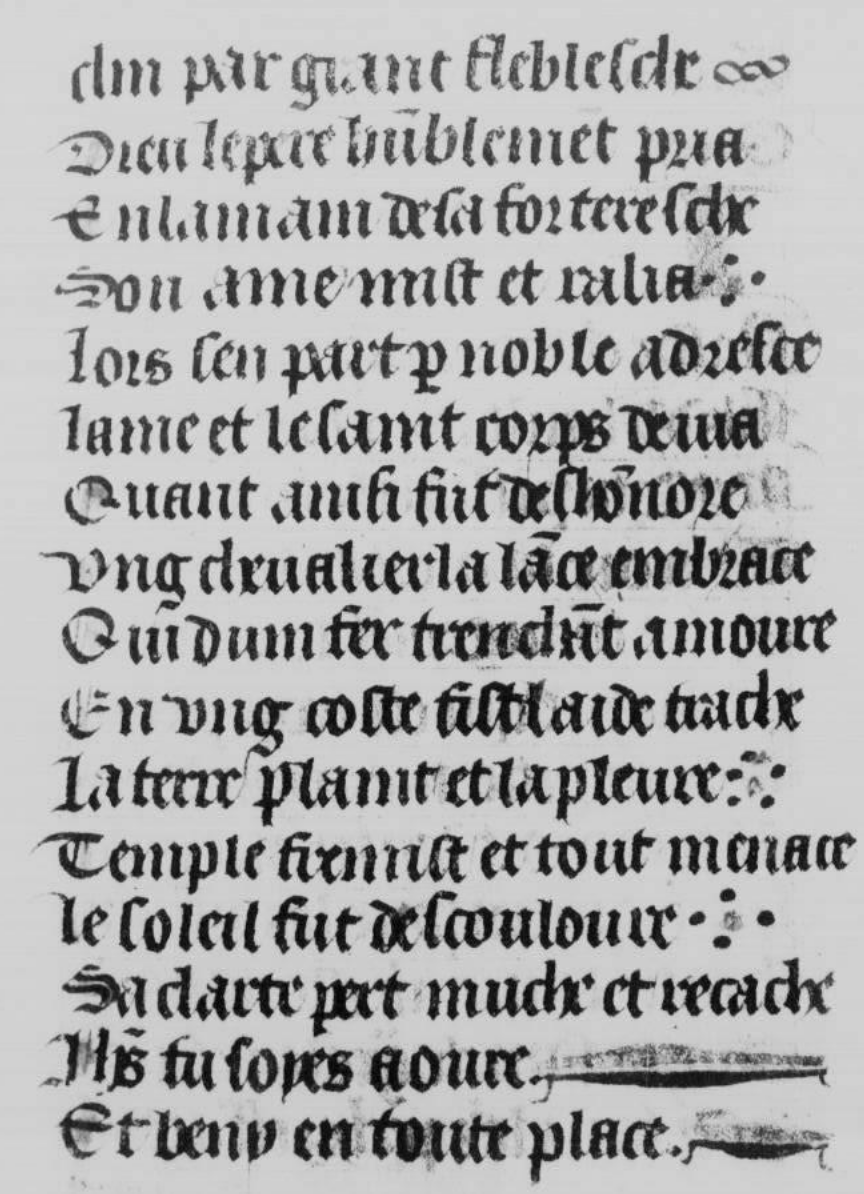 clin par grant fleblesche
Dieu le pere hūblemēt pria
En la main de sa forteresche
Son ame mist et ralia
lors sen part p̱ noble adresce
lame et le saint corps deuia
Quant ainsi fut desho̅nore
vng cheualier la lāce embrace
Qui dum fer trenchāt amoure
En vng coste fist laide trache
La terre plaint et la pleure
Temple fremist et tout menace
le soleil fut descouloure
Sa clarte pert muche et recache
Ihs̄ tu soyes aoure.
Et beny en toute place.